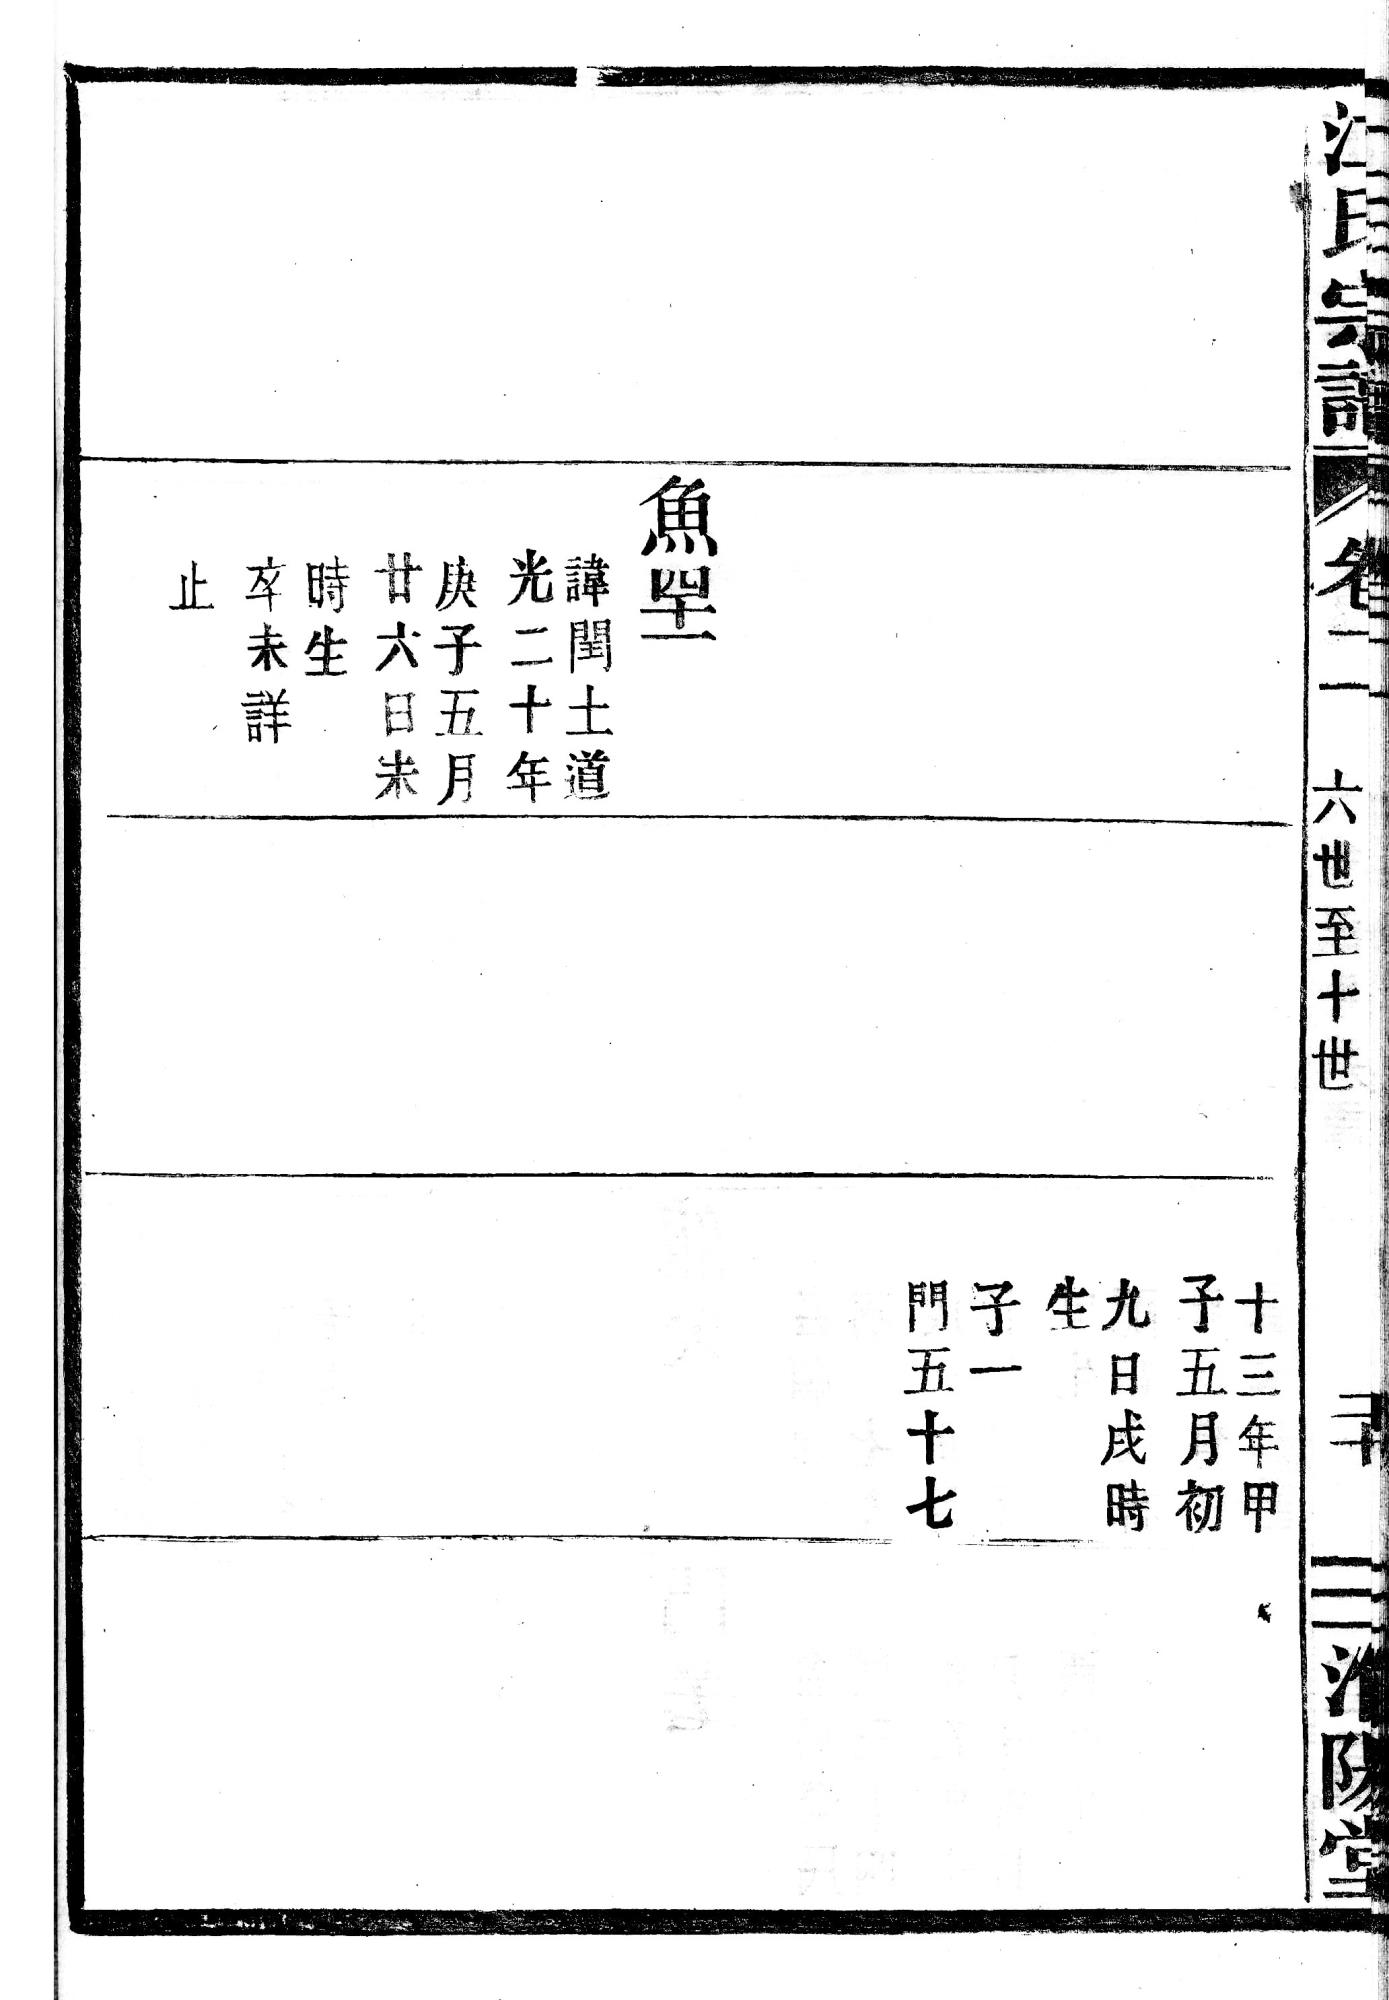 江氏宗譜
卷二
六世至十世
二十
濟陽堂
魚四十一
諱閏土道
光二十年
庚子五月
廿六日未
時生
卒未詳
止
十三年甲
子五月初
九日戌時
生
子一
門五十七